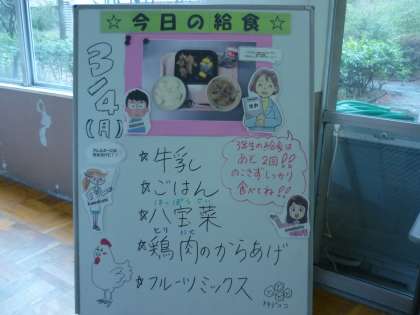 ☆今日の給食☆
3/4(月)
☆牛乳
☆ごはん
はっぽうさい
☆八宝菜
とりにく
☆鶏肉のからあげ
☆フルーツミックス
3年生の給食は
あと2回!!
のこさずしっかり
食べてね!!